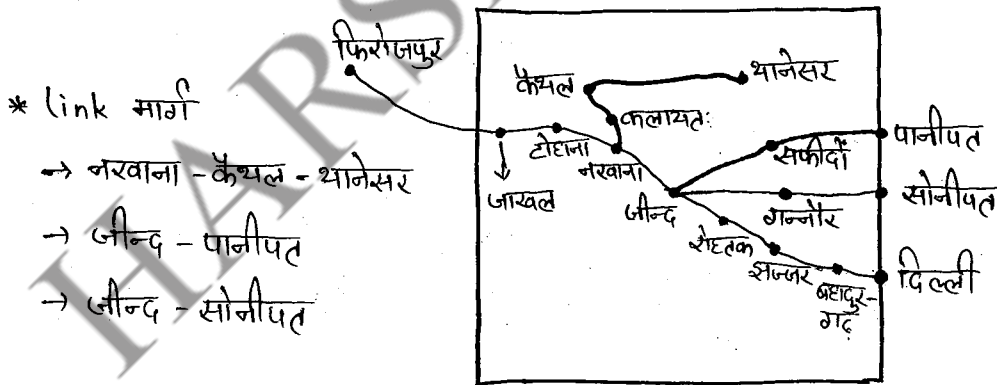 * link मार्ग
→ नरवाना - कैथल - थानेसर
→ जीन्द - पानीपत
→ जीन्द - सोनीपत
फिरोजपुर
कैथल
थानेसर
कलायत:
टोहाना
नरवाना
जाखल
जीन्द
सफीदों
पानीपत
गन्नौर
सोनीपत
रोहतक
झज्जर
बहादुर-
गढ़
दिल्ली
HARS